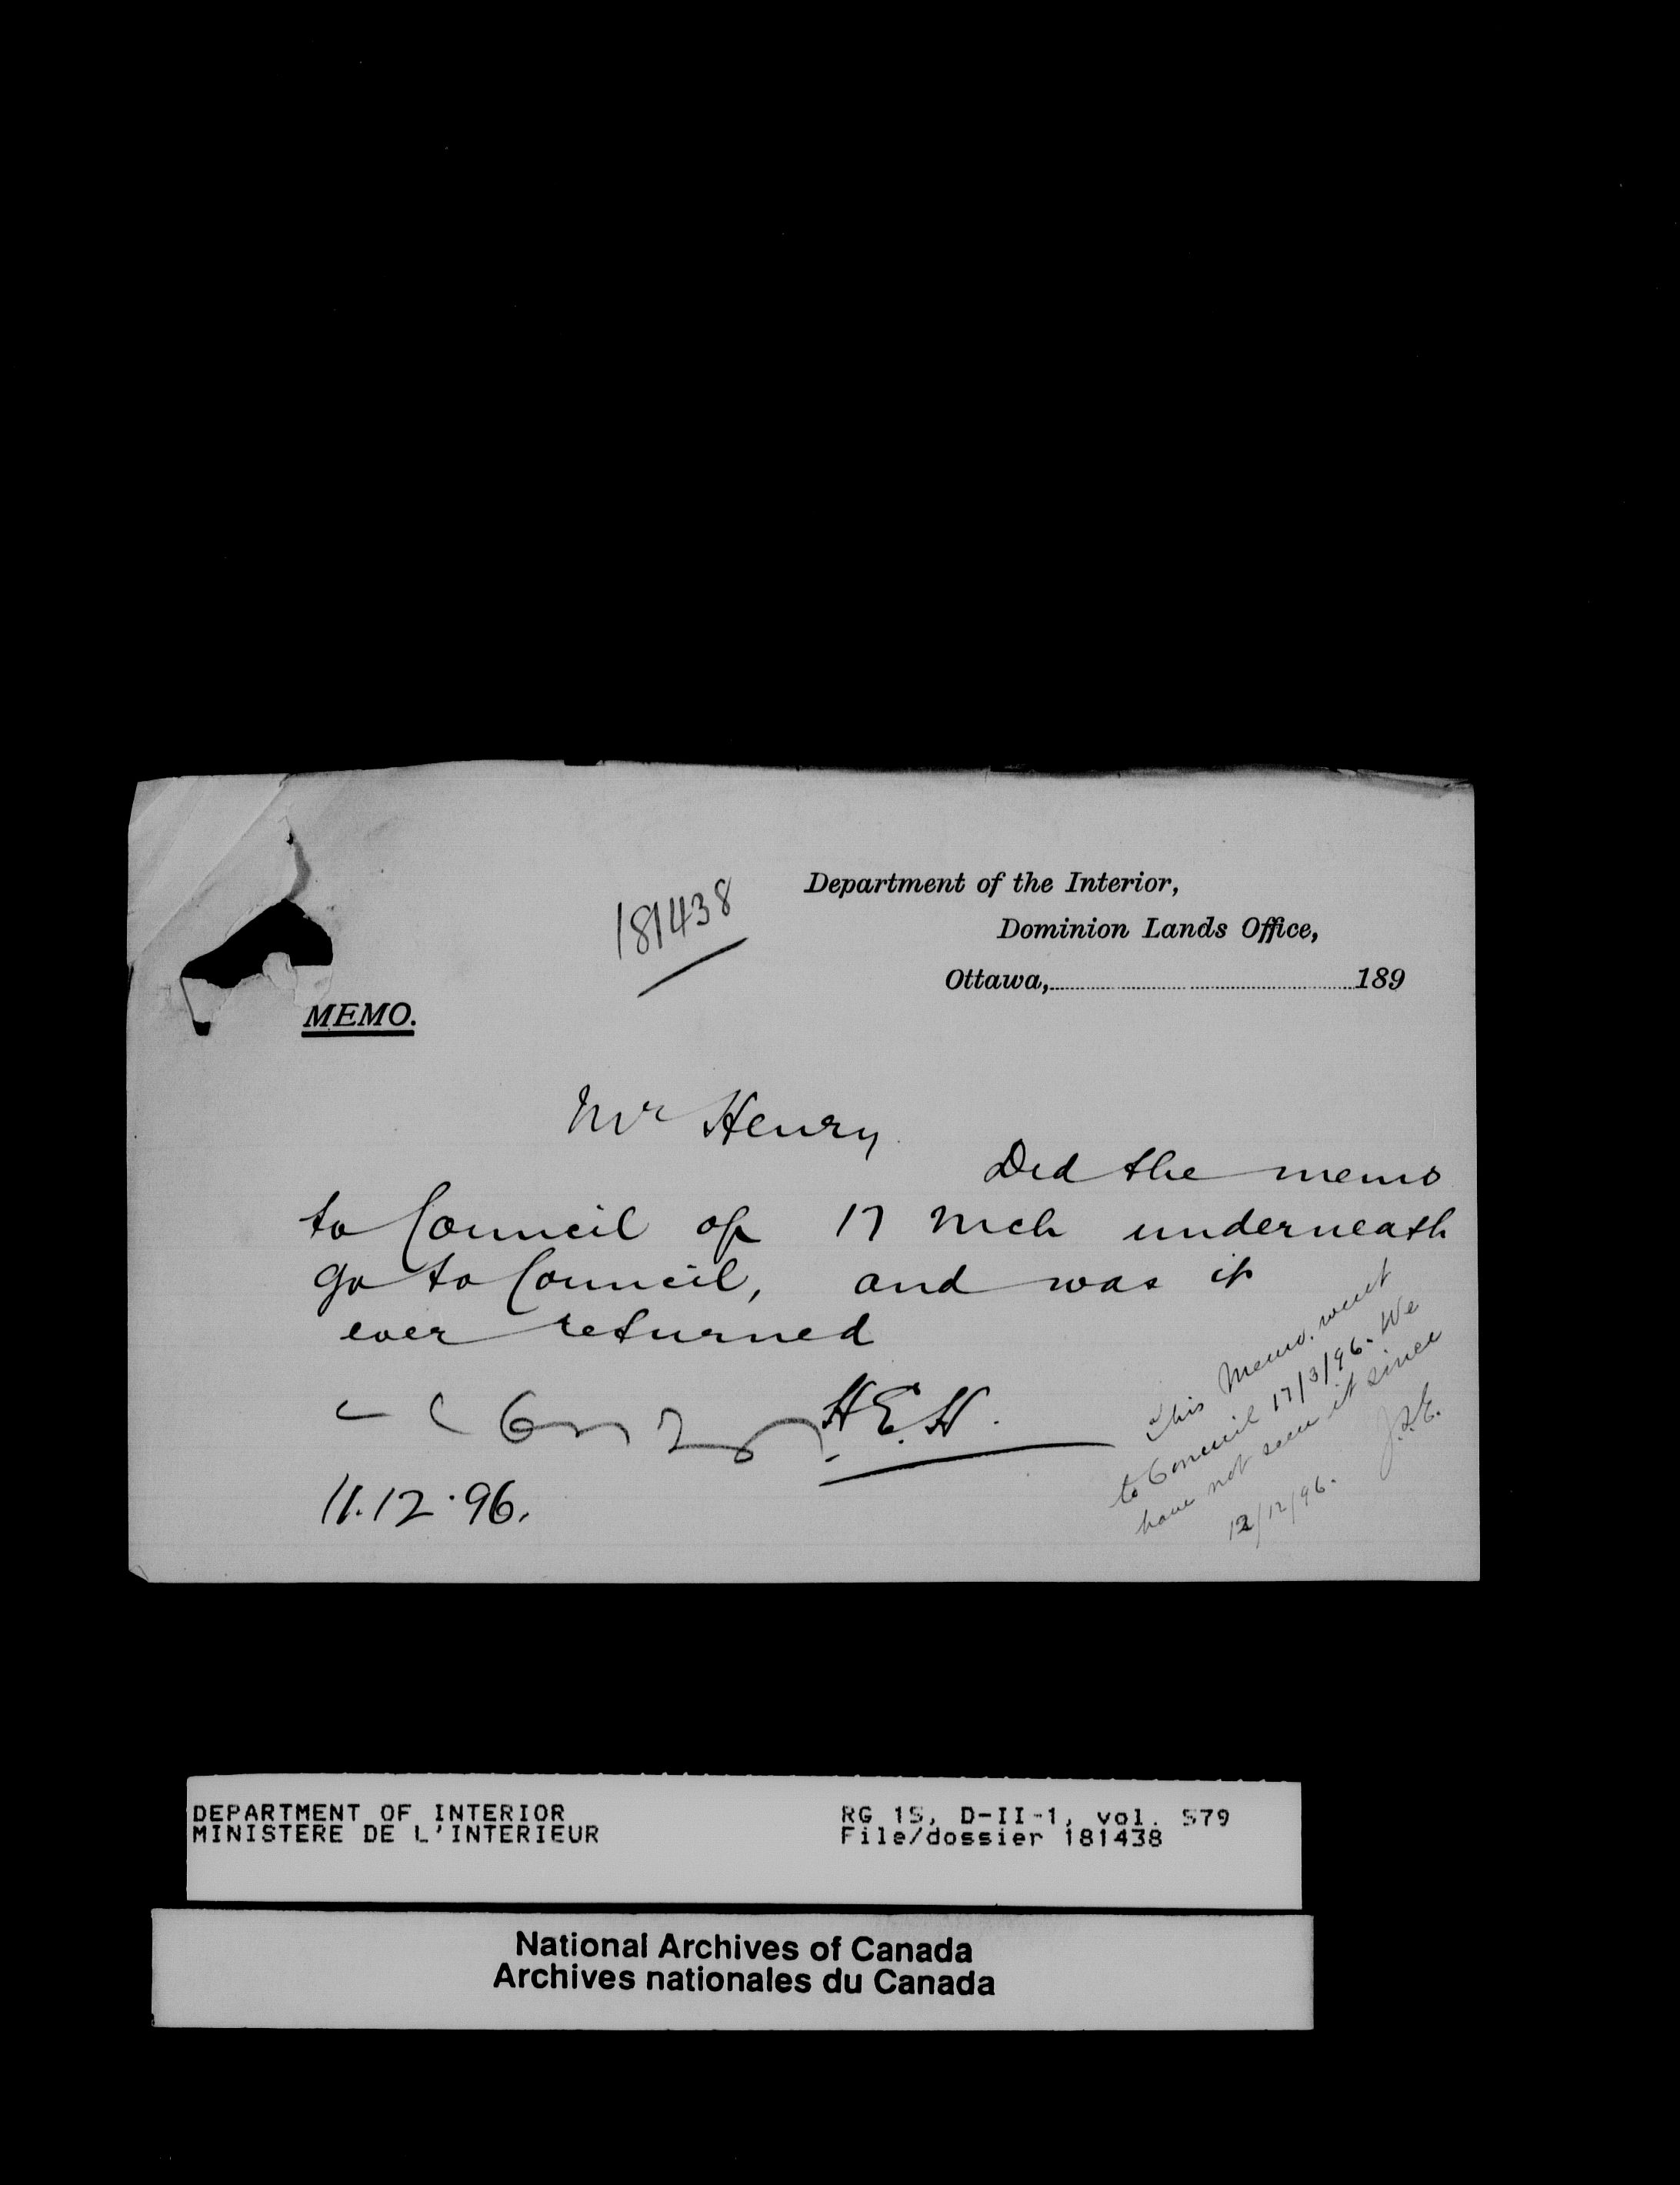 181438
Department of the Interior,
Dominion Lands Office,
Ottawa, 189
MEMO.
Mr Henry
Did the memo
to Council of 17 Mch underneath
go to Council, and was it
ever returned
H.E.H.
11.12.96.
This Memo. went
to Council 17/3/96. We
have not seen it since
12/12/96.
DEPARTMENT OF INTERIOR
MINISTERE DE L'INTERIEUR
RG 15, D-II-1, vol. 579
File/dossier 181438
National Archives of Canada
Archives nationales du Canada